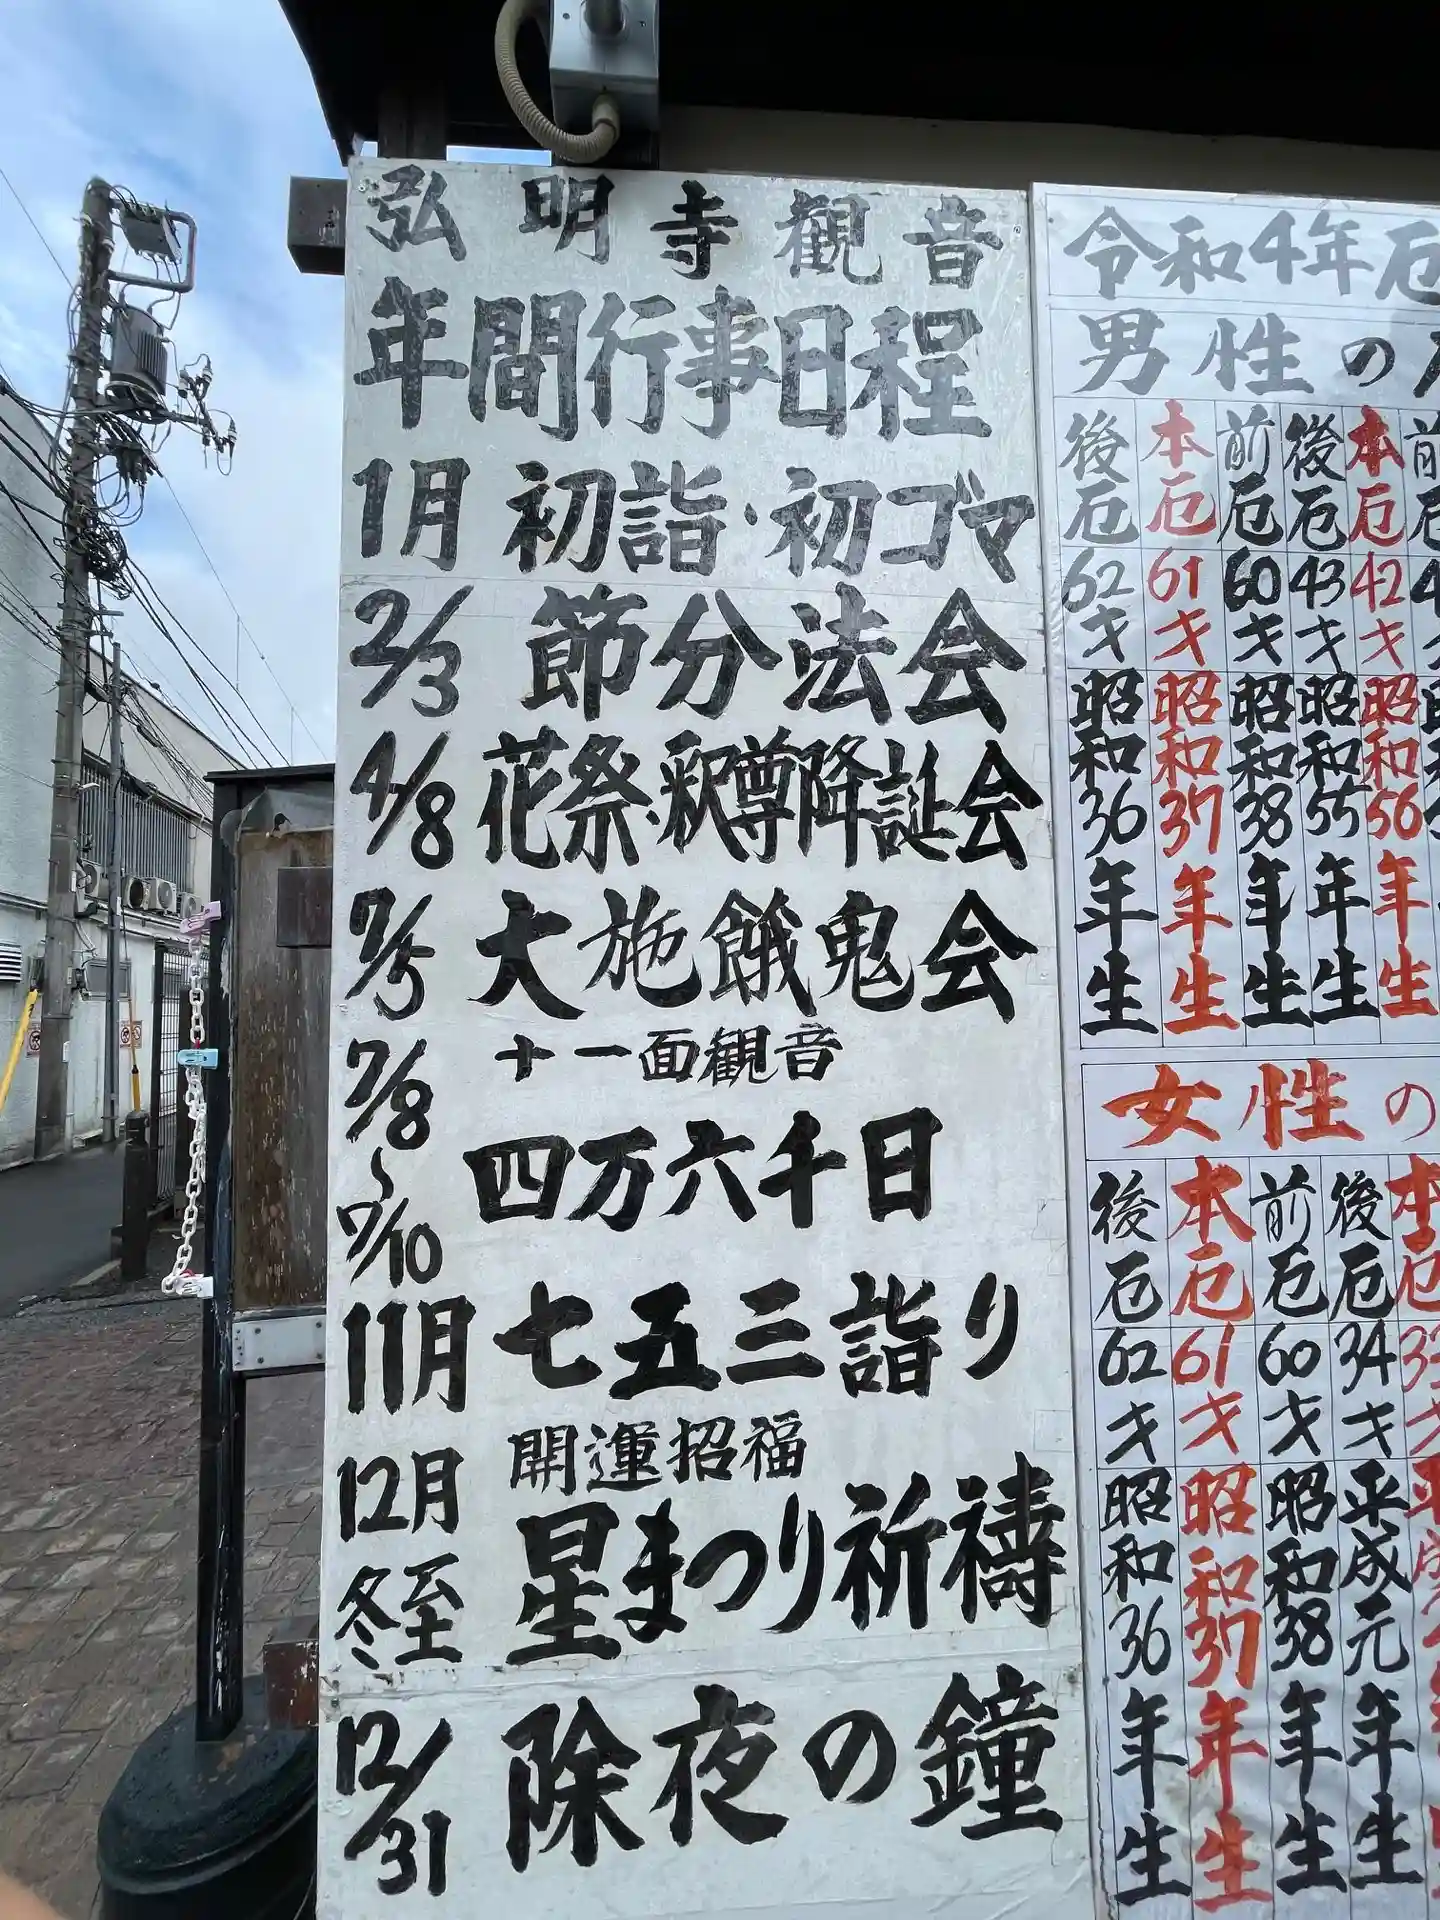 弘明寺観音
年間行事日程
1月 初詣・初ゴマ
2/3 節分法会
4/8 花祭・釈尊降誕会
7/5 大施餓鬼会
7/8〜7/10 十一面観音
四万六千日
11月 七五三詣り
12月冬至 開運招福
星まつり祈祷
12/31 除夜の鐘
令和4年厄
男性の
後厄 62才 昭和36年生
本厄 61才 昭和37年生
前厄 60才 昭和38年生
後厄 43才 昭和55年生
本厄 42才 昭和56年生
前
女性の
後厄 62才 昭和36年生
本厄 61才 昭和37年生
前厄 60才 昭和38年生
後厄 34才 平成元年生
本厄